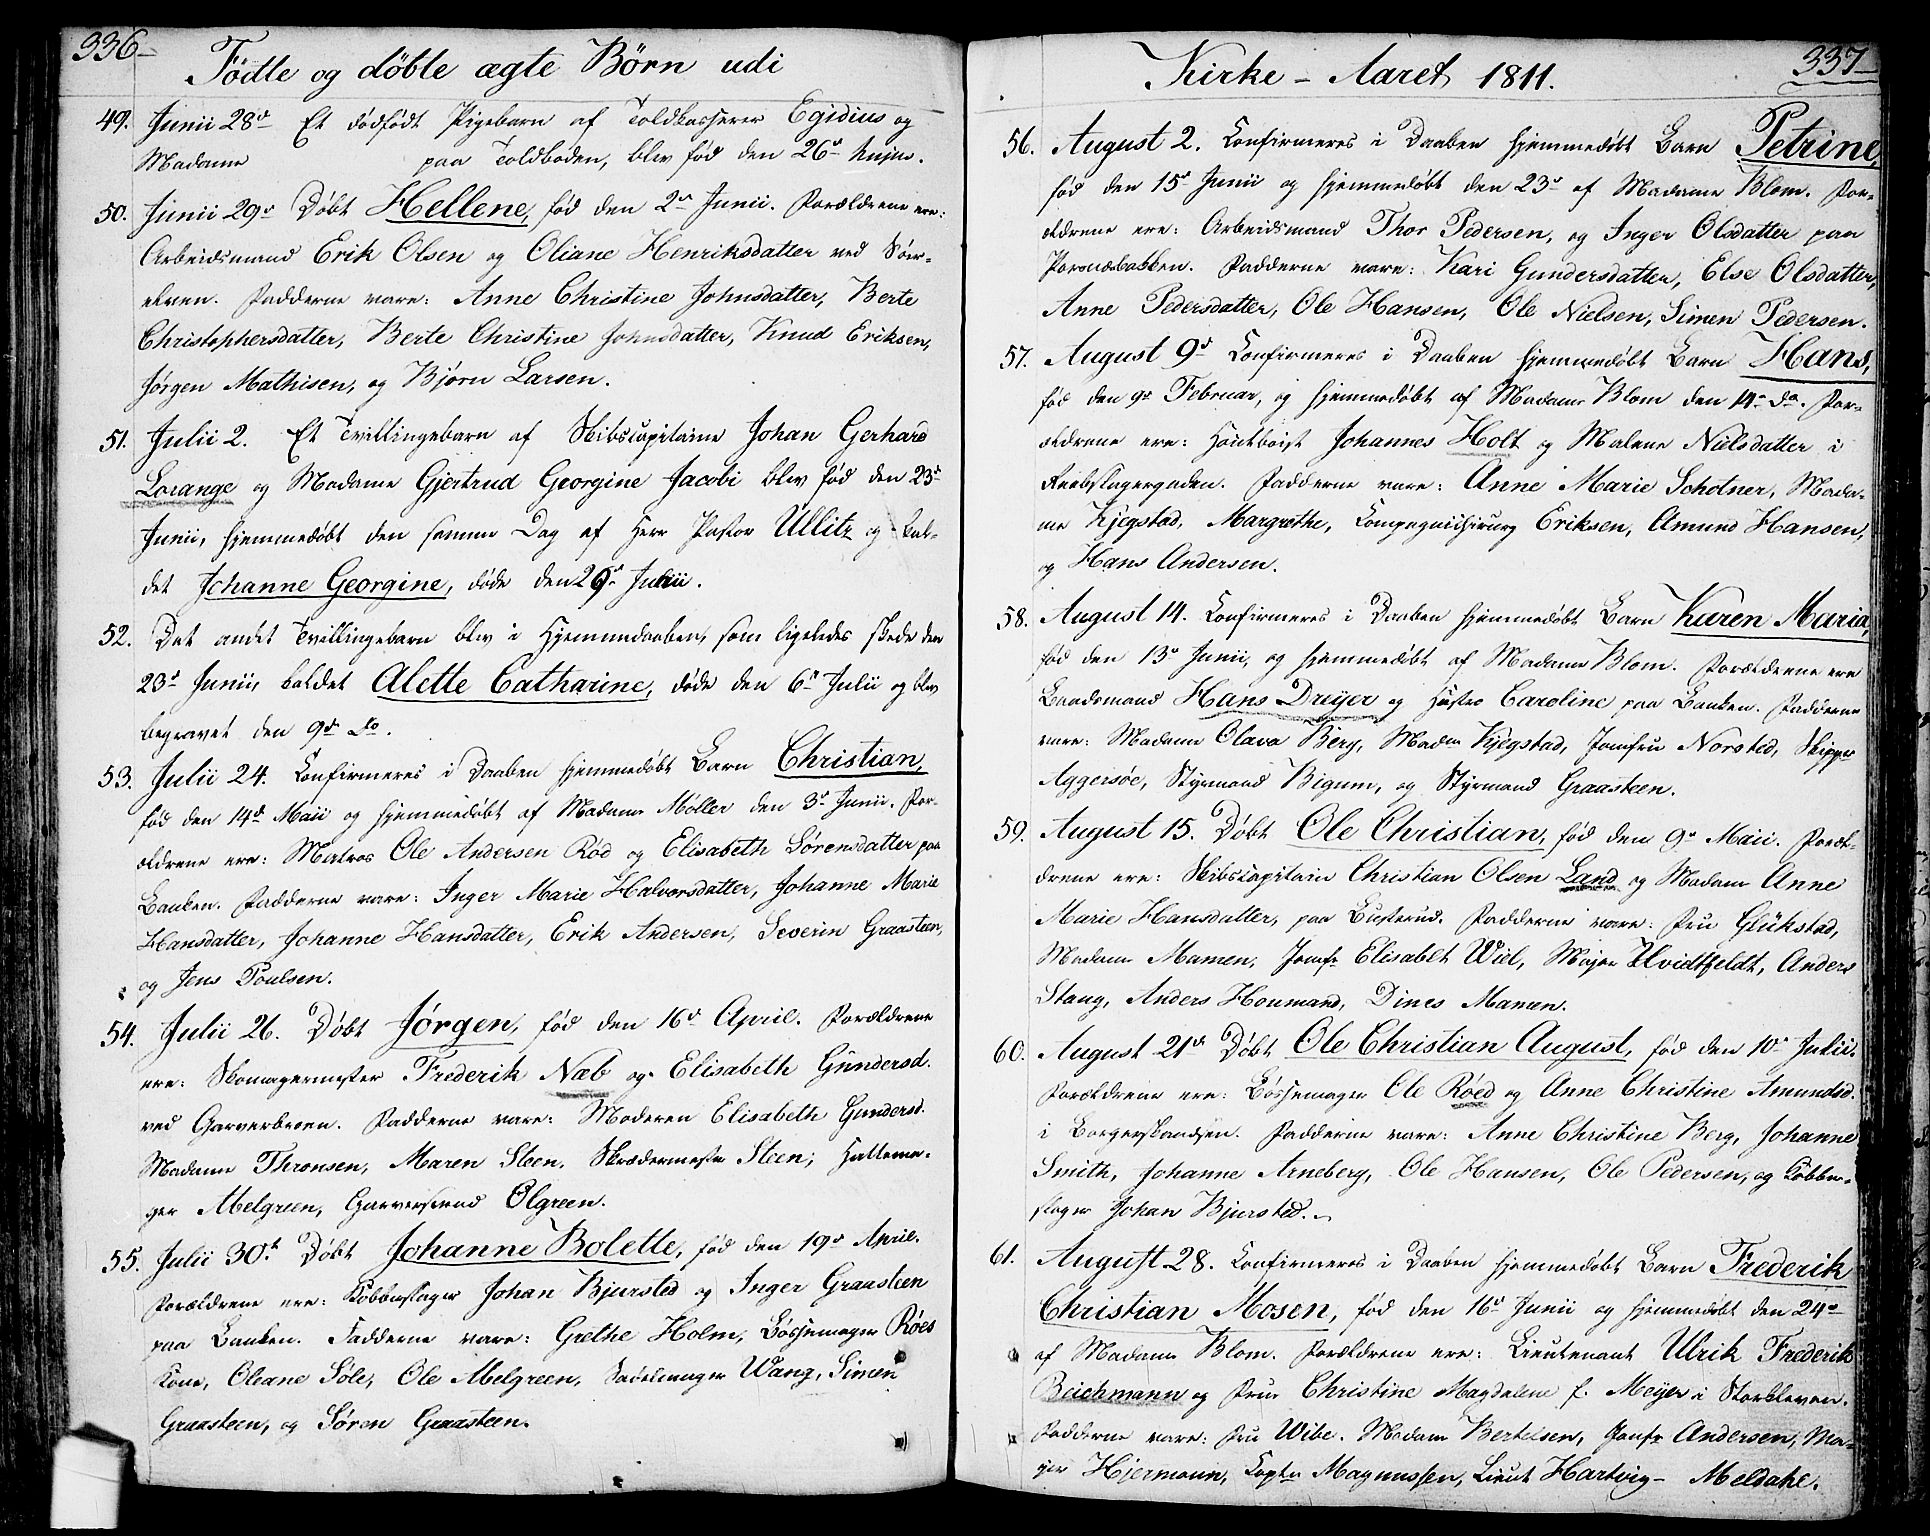 336
Födte og döbte ægte Börn udi
49. Junii 28de Et dödfödt Pigebarn af Toldkasserer Egidius og
Madame paa Toldboden, blev föd den 26de hujus.
50. Junii 29de Döbt Hellene, föd den 2de Junii. Forældrene ere:
Arbeidsmand Erik Olsen og Oliane Henriksdatter ved Söer-
elven. Fadderne vare: Anne Christine Johnsdatter, Berte
Christophersdatter, Berte Christine Johnsdatter, Knud Eriksen,
Jörgen Mathisen, og Björn Larsen.
51. Julii 2. Et Tvillingebarn af Skibscapitaine Johan Gerhard
Lorange og Madame Gjertrud Georgine Jacobi blev föd den 23de
Junii, hjemmedöbt den samme Dag af Herr Pastor Ullitz og kal-
det Johanne Georgine, döde den 29de Junii.
52. Det andet Tvillingebarn blev i Hjemmedaaben, som ligeledes skede den
23de Junii, kaldet Alette Catharine, döde den 6te Julii og blev
begravet den 9de do.
53. Julii 24. Confirmeres i Daaben hjemmedöbt Barn Christian,
föd den 14de Maii og hjemmedöbt af Madame Möller den 3de Junii. For-
ældrene ere: Matros Ole Andersen Röd og Elisabeth Sörensdatter paa
Banken. Fadderne vare: Inger Marie Halvorsdatter, Johanne Marie
Hansdatter, Johanne Hansdatter, Erik Andersen, Severin Graasteen,
og Jens Poulsen.
54. Julii 26. Döbt Jörgen, föd den 16de April. Forældrene
ere: Skomagermester Frederik Næb og Elisabeth Gundersd.
ved Garverbroen. Fadderne vare: Moderen Elisabeth Gundersd.
Madame Thronsen, Maren Steen, Skrædermester Steen, Hattema-
ger Melgreen, Garversvend Olgreen.
55. Julii 30te Döbt Johanne Bolette, föd den 19de April.
Forældrene ere: Kobberslager Johan Bjursted og Inger Graasteen
paa Banken. Fadderne vare: Grethe Holm, Bössemager Röes
Kone, Oleane Söle, Ole Melgreen, Sadelmager Wang, Simen
Graasteen, og Sören Graasteen.
337
Kirke-Aaret 1811.
56. August 2. Confirmeres i Daaben hjemmedöbt Barn Petrine,
föd den 15de Junii og hjemmedöbt den 23de af Madame Blom. For-
ældrene ere: Arbeidsmand Thor Pedersen, og Inger Olsdatter paa
Porsnæsbakken. Fadderne vare: Kari Gundersdatter, Else Olsdatter,
Anne Pedersdatter, Ole Hansen, Ole Nielsen, Simen Pedersen.
57. August 9de Confirmeres i Daaben hjemmedöbt Barn Hans,
föd den 9de Februar, og hjemmedöbt af Madame Blom den 14de do. For-
ældrene ere: Houtboist Johannes Holt og Malene Nielsdatter i
Reebslagergaden. Fadderne vare: Anne Marie Schotner, Mada-
me Kjegstad, Margrethe, Compagniechirurg Eriksen, Amund Hansen,
og Hans Andersen.
58. August 14. Confirmeres i Daaben hjemmedöbt Barn Karen Maria,
föd den 13de Junii, og hjemmedöbt af Madame Blom. Forældrene ere
Baadsmand Hans Dreyer og Hustro Caroline paa Banken. Fadderne
vare: Madame Olava Berg, Madme Kjegstad, Jomfru Norsted, Skipper
Aggersöe, Styrmand Bigum, og Styrmand Graasteen.
59. August 15. Döbt Ole Christian, föd den 9de Maii. Foræl-
drene ere: Skibscapitain Christian Olsen Land og Madame Anne
Marie Hansdatter, paa Busterud. Fadderne vare: Fru Glükstad,
Madame Mamen, Jomfr Elisabet Wiel, Major Hvidtfeldt, Anders
Stang, Anders Houmand, Dines Mamen.
60. August 21de Döbt Ole Christian August, föd den 10de Julii.
Forældrene ere: Bössemager Ole Röed og Anne Christine Amundsd.
i Borgerskandsen. Fadderne vare: Anne Christine Berg, Johanne
Smith, Johanne Arneberg, Ole Hansen, Ole Pedersen, og Kobber-
slager Johan Bjursted.
61. August 28. Confirmeres i Daaben hjemmedöbt Barn Frederik
Christian Mosen, föd den 16de Junii og hjemmedöbt den 24de
af Madame Blom. Forældrene ere: Lieutenant Ulrik Frederik
Beichmann og Frue Christine Magdalene f. Meyer i Storkleven.
Fadderne vare: Fru Wibe, Madam Bertelsen, Jomfr Andersen, Ma-
jor Hjermann, Captn Magnussen, Lieut Hartvig Meldahl.